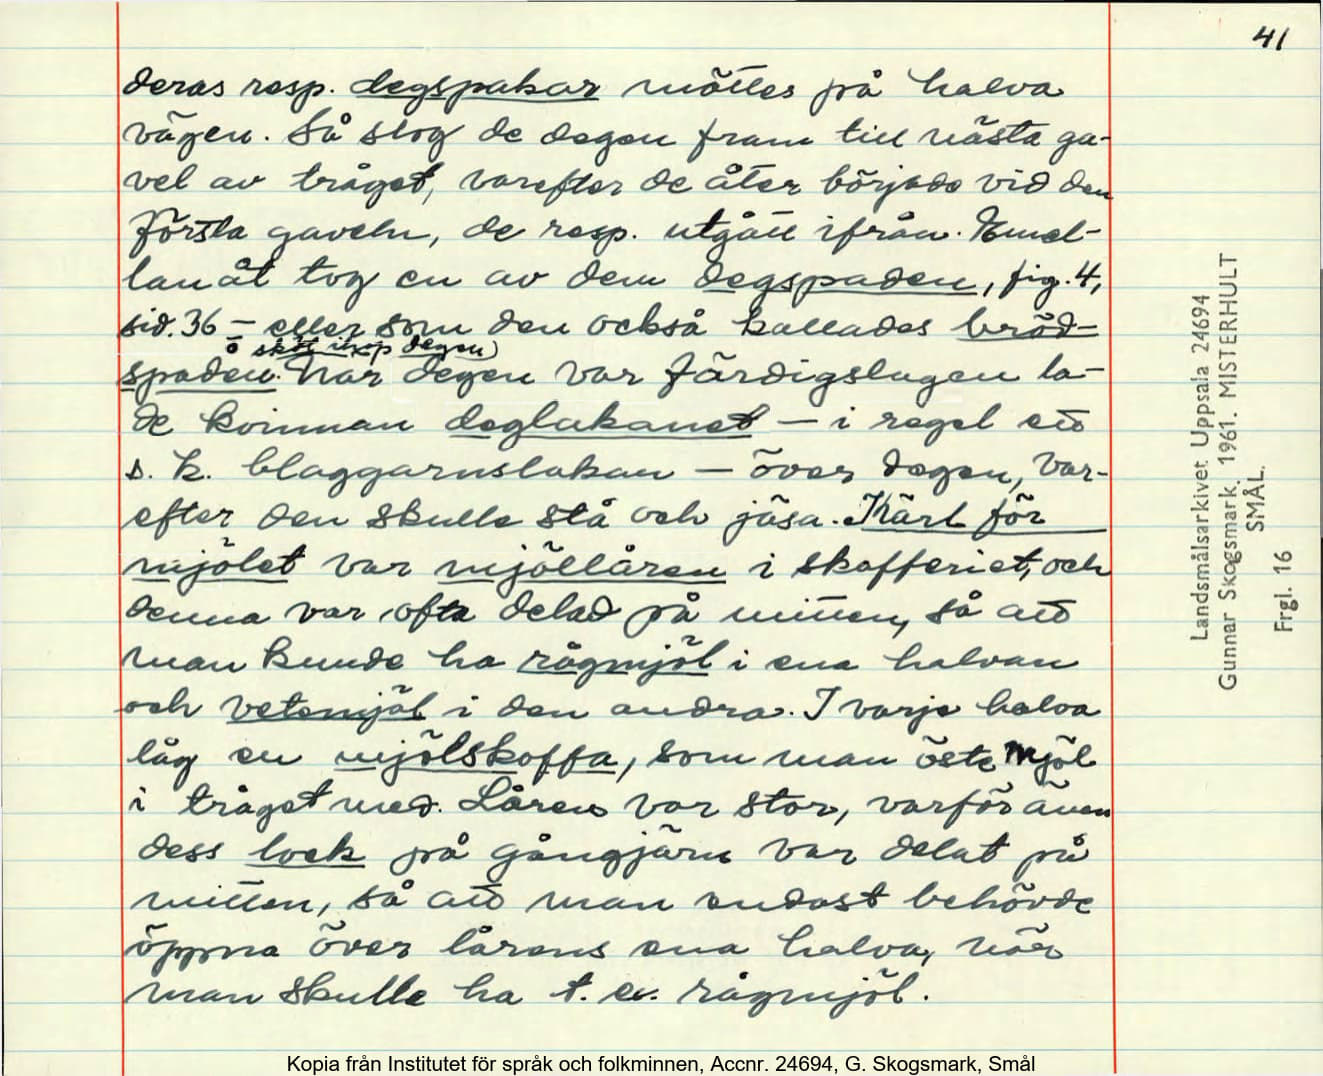 41
deras resp. degspakar möttes på halva
vägen. Så slog de degen fram till nästa ga-
vel av tråget, varefter de åter började vid den
första gaveln, de resp. utgått ifrån. Emel-
lanåt tog en av dem degspaden, fig. 4,
sid. 36 – eller som den också kallades bröd-
o sköt ihop degen)
spaden. När degen var färdigslagen la-
de kvinnan deglakanet – i regel ett
s. k. blaggarnslakan – över degen, var-
efter den skulle stå och jäsa. Kärl för
mjölet var mjöllåren i skafferiet, och
denna var ofta delad på mitten, så att
man kunde ha rågmjöl i ena halvan
och vetemjöl i den andra. I varje halva
låg en mjölskoffa, som man öste mjöl
i tråget med. Låren var stor, varför även
dess lock på gångjärn var delat på
mitten, så att man endast behövde
öppna över lårens ena halva, när
man skulle ha t. ex. rågmjöl.
Landsmålsarkivet Uppsala 24694
Gunnar Skogsmark. 1961. MISTERHULT
SMÅL.
Frgl. 16
Kopia från Institutet för språk och folkminnen, Accnr. 24694, G. Skogsmark, Smål